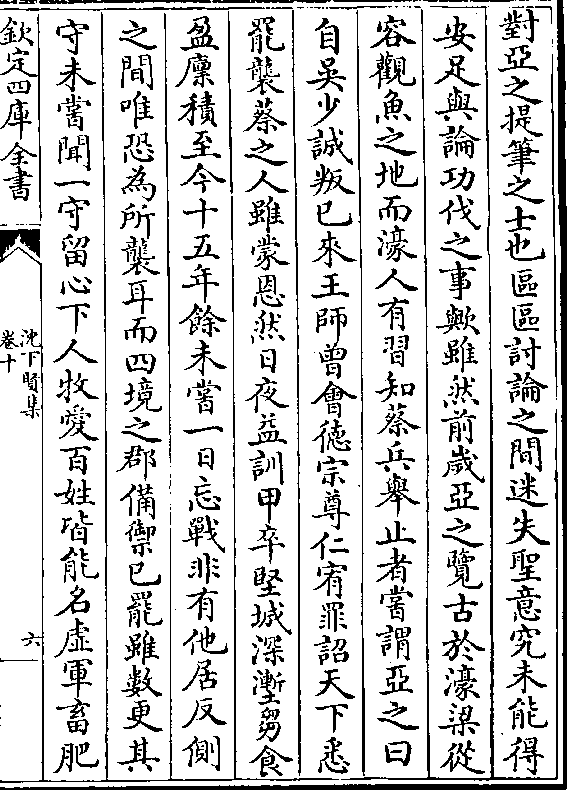 對亞之提筆之士也區區討論之間迷失聖意究未能得
安足與論功伐之事歟雖然前歲亞之覽古於濠梁從
容觀魚之地而濠人有習知蔡兵舉止者嘗謂亞之曰
自吳少誠叛已來王師曾會德宗尊仁宥罪詔天下悉
罷襲蔡之人雖蒙恩然日夜益訓甲卒堅城深塹芻食
盈廩積至今十五年餘未嘗一日忘戰非有他居反側
之間唯恐為所襲耳而四境之郡備禦已罷雖數更其
守未嘗聞一守留心下人牧愛百姓皆能名虛軍畜肥
欽定四庫全書
沈下賢集
卷十
六